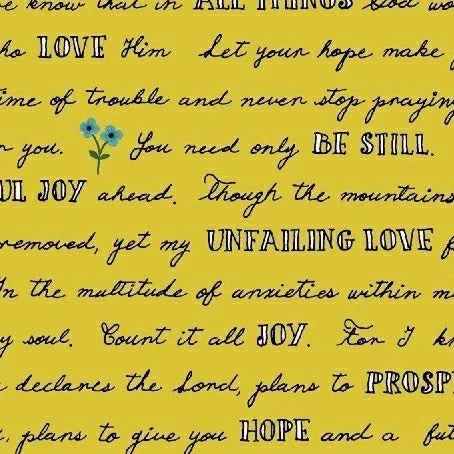 know that in ALL THINGS God wo
ho LOVE Him Let your hope make
ime of trouble and never stop praying
you. You need only BE STILL.
UL JOY ahead. Though the mountains
removed, yet my UNFAILING LOVE f
In the multitude of anxieties within m
y soul. Count it all JOY. For I k
declares the Lord, plans to PROSP
plans to give you HOPE and a fut